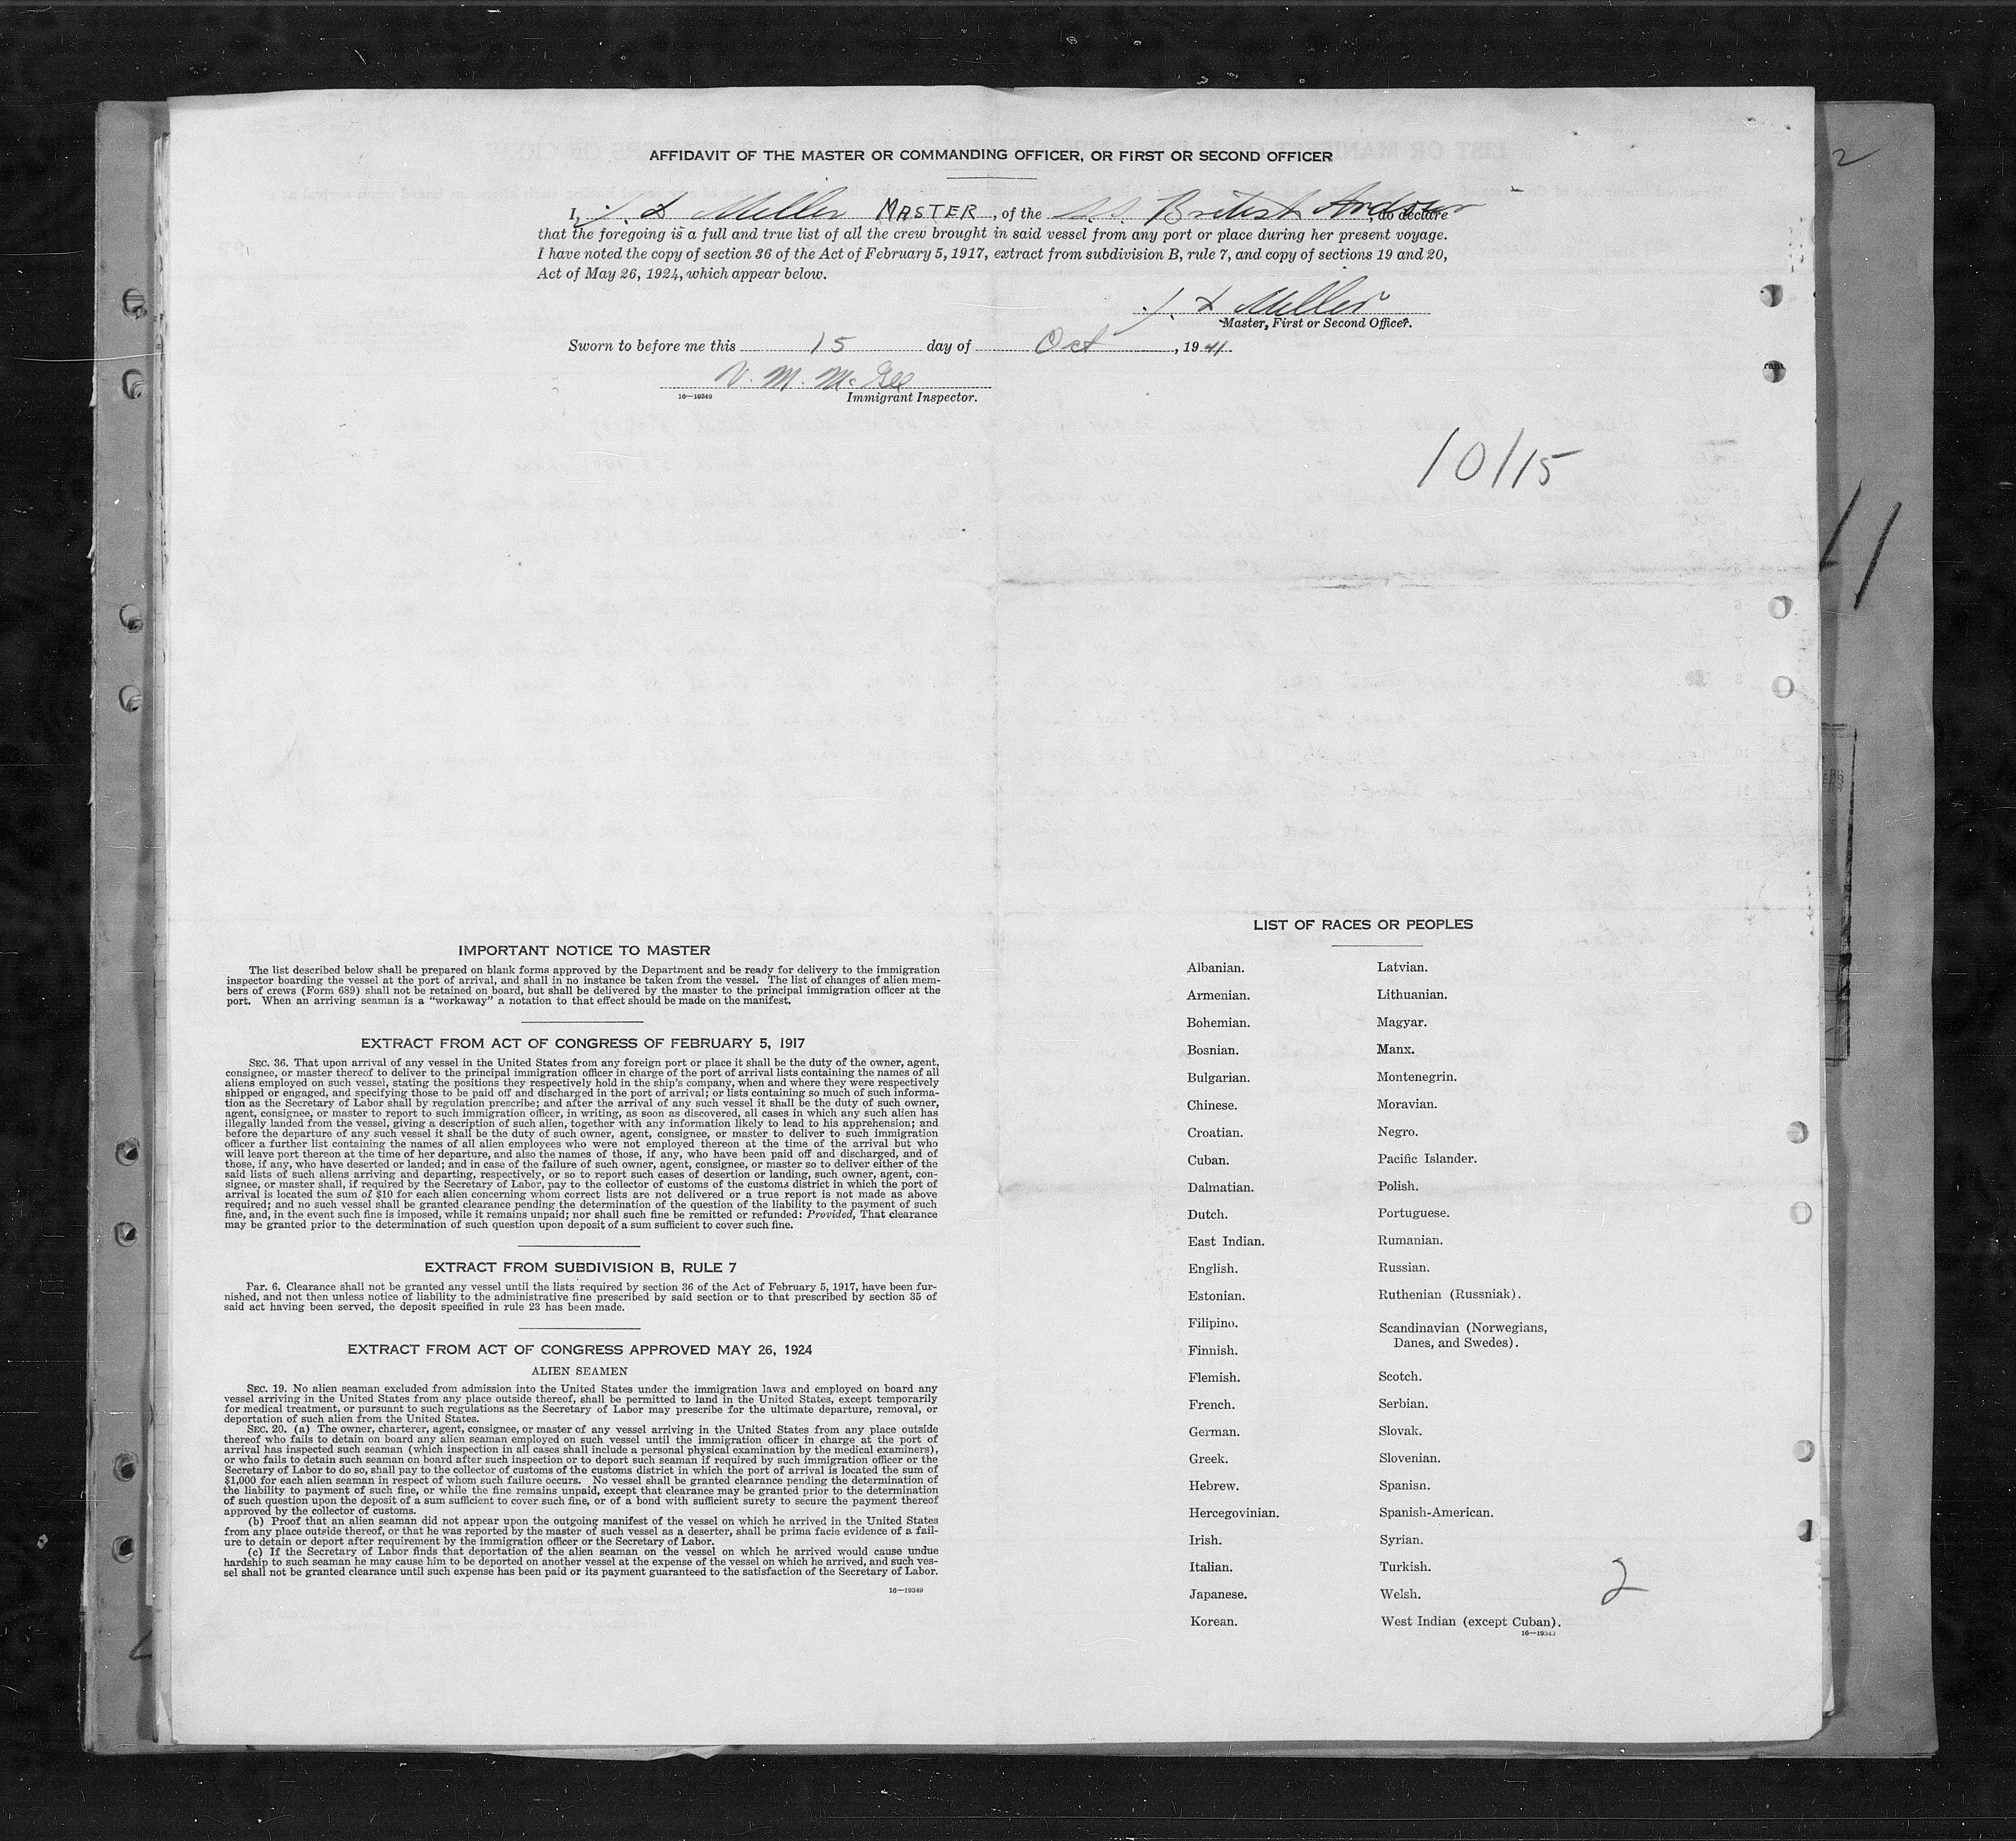 AFFIDAVIT OF THE MASTER OR COMMANDING OFFICER, OR FIRST OR SECOND OFFICER
I, J. L Miller MASTER, of the S.S. British Ardour, do declare
that the foregoing is a full and true list of all the crew brought in said vessel from any port or place during her present voyage.
I have noted the copy of section 36 of the Act of February 5, 1917, extract from subdivision B, rule 7, and copy of sections 19 and 20,
Act of May 26, 1924, which appear below.
J. L Miller
Master, First or Second Officer.
Sworn to before me this 15 day of Oct, 1941
V. M. McGee
16—19349 Immigrant Inspector.
10/15
2
11
IMPORTANT NOTICE TO MASTER
The list described below shall be prepared on blank forms approved by the Department and be ready for delivery to the immigration
inspector boarding the vessel at the port of arrival, and shall in no instance be taken from the vessel. The list of changes of alien mem-
bers of crews (Form 689) shall not be retained on board, but shall be delivered by the master to the principal immigration officer at the
port. When an arriving seaman is a "workaway" a notation to that effect should be made on the manifest.
EXTRACT FROM ACT OF CONGRESS OF FEBRUARY 5, 1917
SEC. 36. That upon arrival of any vessel in the United States from any foreign port or place it shall be the duty of the owner, agent,
consignee, or master thereof to deliver to the principal immigration officer in charge of the port of arrival lists containing the names of all
aliens employed on such vessel, stating the positions they respectively hold in the ship's company, when and where they were respectively
shipped or engaged, and specifying those to be paid off and discharged in the port of arrival; or lists containing so much of such informa-
tion as the Secretary of Labor shall by regulation prescribe; and after the arrival of any such vessel it shall be the duty of such owner,
agent, consignee, or master to report to such immigration officer, in writing, as soon as discovered, all cases in which any such alien has
illegally landed from the vessel, giving a description of such alien, together with any information likely to lead to his apprehension; and
before the departure of any such vessel it shall be the duty of such owner, agent, consignee, or master to deliver to such immigration
officer a further list containing the names of all alien employees who were not employed thereon at the time of the arrival but who
will leave port thereon at the time of her departure, and also the names of those, if any, who have been paid off and discharged, and of
those, if any, who have deserted or landed; and in case of the failure of such owner, agent, consignee, or master so to deliver either of the
said lists of such aliens arriving and departing, respectively, or so to report such cases of desertion or landing, such owner, agent, con-
signee, or master shall, if required by the Secretary of Labor, pay to the collector of customs of the customs district in which the port of
arrival is located the sum of $10 for each alien concerning whom correct lists are not delivered or a true report is not made as above
required; and no such vessel shall be granted clearance pending the determination of the question of the liability to the payment of such
fine, and, in the event such fine is imposed, while it remains unpaid; nor shall such fine be remitted or refunded: Provided, That clearance
may be granted prior to the determination of such question upon deposit of a sum sufficient to cover such fine.
EXTRACT FROM SUBDIVISION B, RULE 7
Par. 6. Clearance shall not be granted any vessel until the lists required by section 36 of the Act of February 5, 1917, have been fur-
nished, and not then unless notice of liability to the administrative fine prescribed by said section or to that prescribed by section 35 of
said act having been served, the deposit specified in rule 23 has been made.
EXTRACT FROM ACT OF CONGRESS APPROVED MAY 26, 1924
ALIEN SEAMEN
SEC. 19. No alien seaman excluded from admission into the United States under the immigration laws and employed on board any
vessel arriving in the United States from any place outside thereof, shall be permitted to land in the United States, except temporarily
for medical treatment, or pursuant to such regulations as the Secretary of Labor may prescribe for the ultimate departure, removal, or
deportation of such alien from the United States.
SEC. 20. (a) The owner, charterer, agent, consignee, or master of any vessel arriving in the United States from any place outside
thereof who fails to detain on board any alien seaman employed on such vessel until the immigration officer in charge at the port of
arrival has inspected such seaman (which inspection in all cases shall include a personal physical examination by the medical examiners),
or who fails to detain such seaman on board after such inspection or to deport such seaman if required by such immigration officer or the
Secretary of Labor to do so, shall pay to the collector of customs of the customs district in which the port of arrival is located the sum of
$1,000 for each alien seaman in respect of whom such failure occurs. No vessel shall be granted clearance pending the determination of
the liability to payment of such fine, or while the fine remains unpaid, except that clearance may be granted prior to the determination
of such question upon the deposit of a sum sufficient to cover such fine, or of a bond with sufficient surety to secure the payment thereof
approved by the collector of customs.
(b) Proof that an alien seaman did not appear upon the outgoing manifest of the vessel on which he arrived in the United States
from any place outside thereof, or that he was reported by the master of such vessel as a deserter, shall be prima facie evidence of a fail-
ure to detain or deport after requirement by the immigration officer or the Secretary of Labor.
(c) If the Secretary of Labor finds that deportation of the alien seaman on the vessel on which he arrived would cause undue
hardship to such seaman he may cause him to be deported on another vessel at the expense of the vessel on which he arrived, and such ves-
sel shall not be granted clearance until such expense has been paid or its payment guaranteed to the satisfaction of the Secretary of Labor.
16—19349
LIST OF RACES OR PEOPLES
Albanian.
Armenian.
Bohemian.
Bosnian.
Bulgarian.
Chinese.
Croatian.
Cuban.
Dalmatian.
Dutch.
East Indian.
English.
Estonian.
Filipino.
Finnish.
Flemish.
French.
German.
Greek.
Hebrew.
Hercegovinian.
Irish.
Italian.
Japanese.
Korean.
Latvian.
Lithuanian.
Magyar.
Manx.
Montenegrin.
Moravian.
Negro.
Pacific Islander.
Polish.
Portuguese.
Rumanian.
Russian.
Ruthenian (Russniak).
Scandinavian (Norwegians,
Danes, and Swedes).
Scotch.
Serbian.
Slovak.
Slovenian.
Spanish.
Spanish-American.
Syrian.
Turkish.
Welsh.
West Indian (except Cuban).
16—19349
2